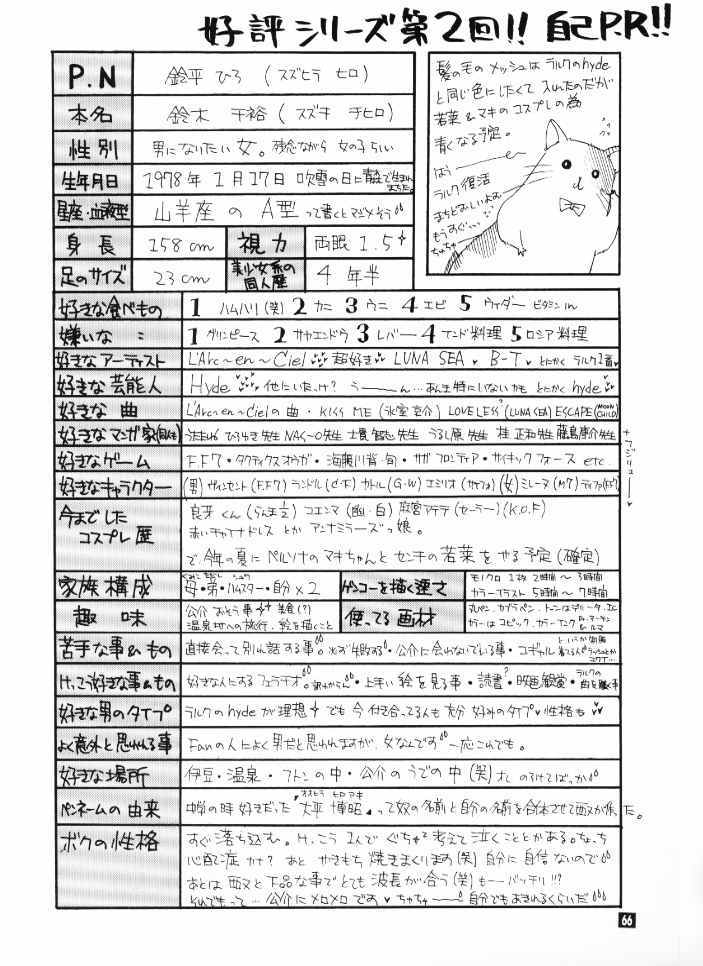 好評シリーズ第2回!! 自己P.R!!
P.N 鈴平 ひろ (スズヒラ ヒロ)
本名 鈴木 千裕 (スズキ チヒロ)
性別 男になりたい女。残念ながら 女の子らしい
生年月日 1978年 1月17日 吹雪の日に青森で生まれました。
星座・血液型 山羊座 の A型 って書くとマジメそう
身長 158cm 視力 両眼 1.5
足のサイズ 23cm 美少女系の同人歴 4年半
髪の毛のメッシュは ラルクのhyde
と同じ色にしたくて 入れたのだが
若菜&マキのコスプレの為
青くなる予定。
ラルク復活
まちどおしいよぉ
もうすぐ…
好きな食べもの 1 ハムハリ(笑) 2 カニ 3 ウニ 4 エビ 5 ウィダー ビタミン in
嫌いな 〃 1 グリンピース 2 サヤエンドウ 3 レバー 4 インド料理 5 ロシア料理
好きな アーティスト L'Arc~en~Ciel 超好き LUNA SEA B-T とにかく ラルク1番
好きな 芸能人 Hyde 他にいたっけ? うーーん…あんま特にいないかも とにかく hyde
好きな 曲 L'Arc~en~Cielの曲・KISS ME (氷室京介) LOVELESS (LUNA SEA) ESCAPE (MOON CHILD)
好きなマンガ家 NAO〜先生 士貴智志先生 うるし原先生 桂 正和先生 藤島康介先生
好きなゲーム F.F.7・タクティクスオウガ・海腹川背・旬・サガ フロンティア・サイキック フォース etc.
好きなキャラクター (男) ヴィンセント (F.F.7) カトル (G・W) (女) ティファ (F.F.7)
今までした コスプレ歴 良牙くん (らんま1/2) コエンマ (幽・白) 麻宮アテナ (セーラー) (K.O.F)
赤いチャイナドレス とか アンナミラーズっ娘。
で 今年の夏に ペルソナの マキちゃんと センチの若菜をやる予定 (確定)
家族構成 母・弟・ハムスター・自分×2 ゲンコーを描く速さ モノクロ 1枚 2時間〜3時間
カラーイラスト 5時間〜7時間
趣味 温泉地への旅行、絵を描くこと 使ってる画材 丸ペン、カブラペン、トーンはデリータ、I.C
カラーはコピック、カラーインク
苦手な事&もの 直接会って別れ話する事。・公介に会えないでいる事・コギャル
けっこう好きな事&もの ・上手い絵を見る事・読書・映画観賞・ラルクの曲を聴く事
好きな男のタイプ ラルクのhydeが理想 でも 今 付き合ってる人も 充分 好みのタイプ 性格も
よく意外と思われる事 Fanの人によく男だと思われますが、女なんです 一応これでも。
好きな場所 伊豆・温泉・フトンの中・公介のうでの中 (笑) のろけてばっか
ペンネームの由来 中学の時 好きだった 大平 博昭 って奴の名前と自分の名前を合体させて た。
ボクの性格 すぐ落ち込む。けっこう 考えて 泣くことがある。
心配症 かな? あと やきもち 焼きまくります (笑) 自分に 自信 ないので
あとは と 下品な事で とても 波長が合う (笑) もーーバッチリ!!!
それでもって… 公介にメロメロです 自分でもあきれるくらいだ
66